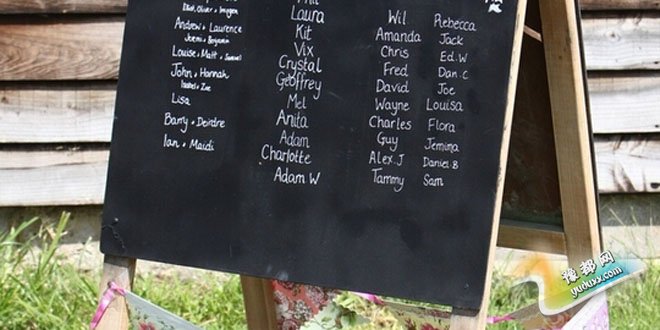 Eliot, Oliver + Imogen
Andrew + Laurence
Joemi + Benjamin
Louise + Matt + Samuel
John + Hannah
Isabel + Zoe
Lisa
Barry + Deirdre
Ian + Maidi
Laura
Kit
Vix
Crystal
Geoffrey
Mel
Anita
Adam
Charlotte
Adam W
Wil
Amanda
Chris
Fred
David
Wayne
Charles
Guy
Alex.J
Tammy
Rebecca
Jack
Ed.W
Dan.C
Joe
Louisa
Flora
Jemima
Daniel.B
Sam
豫都网
yuduxx.com